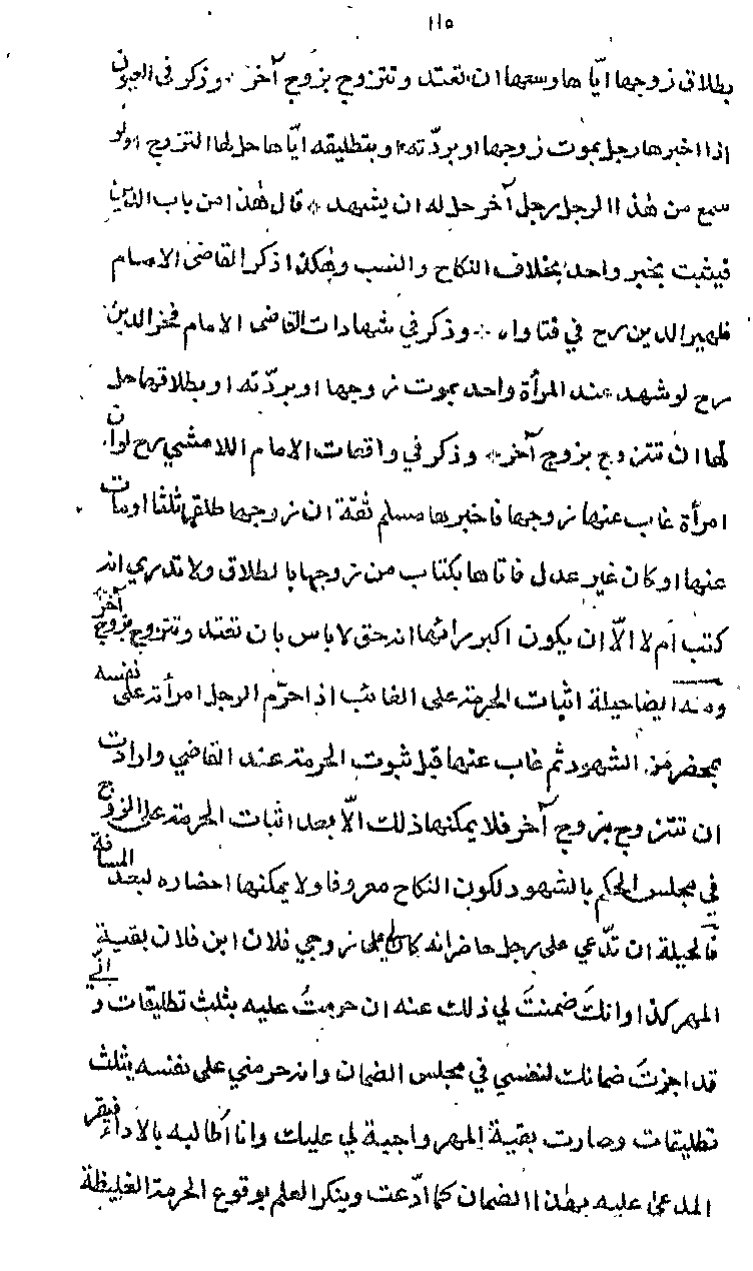 ١١٥
بطلاق زوجها ايّاها وسعها ان تعتد وتتزوج بزوج آخر * وذكر فى العيون
اذا اخبرها رجل بموت زوجها او بردّته او بتطليقه ايّاها حل لها التزوج * ولو
سمع من هذا الرجل رجل آخر حل له ان يشهد * قال هذا من باب الدين
فيثبت بخبر واحد بخلاف النكاح والنسب وهكذا ذكر القاضى الامام
ظهير الدين رح في فتاواه * وذكر في شهادات القاضى الامام فخر الدين
رح لو شهد عند المرأة واحد بموت زوجها او بردّته او بطلاقها حل
لها ان تتزوج بزوج آخر * وذكر في واقعات الامام اللامشي رح لو ان
امرأة غاب عنها زوجها فاخبرها مسلم ثقة ان زوجها طلقها ثلثا او مات
عنها او كان غير عدل فاتاها بكتاب من زوجها بالطلاق ولا تدري انه
كتب ام لا الّا ان يكون اكبر رائها انه حق لا باس بان تعتد وتتزوج بزوج آخر
ومنه ايضا حيلة اثبات الحرمة على الغائب اذا حرّم الرجل امرأته على نفسه
بمحضر من الشهود ثم غاب عنها قبل ثبوت الحرمة عند القاضي وارادت
ان تتزوج بزوج آخر فلا يمكنها ذلك الّا بعد اثبات الحرمة على الزوج
في مجلس الحكم بالشهود لكون النكاح معروفا ولا يمكنها احضاره لبعد المسافة
فالحيلة ان تدّعي على رجل حاضر انه كان لي على زوجي فلان ابن فلان بقية
المهر كذا وانك ضمنتَ لي ذلك عنه ان حرمتُ عليه بثلث تطليقات واني
قد اجزتُ ضمانك لنفسي في مجلس الضمان وانه حرمني على نفسه بثلث
تطليقات وصارت بقية المهر واجبة لي عليك وانا اطالبه بالاداء فيقر
المدعى عليه بهذا الضمان كما ادّعت وينكر العلم بوقوع الحرمة الغليظة